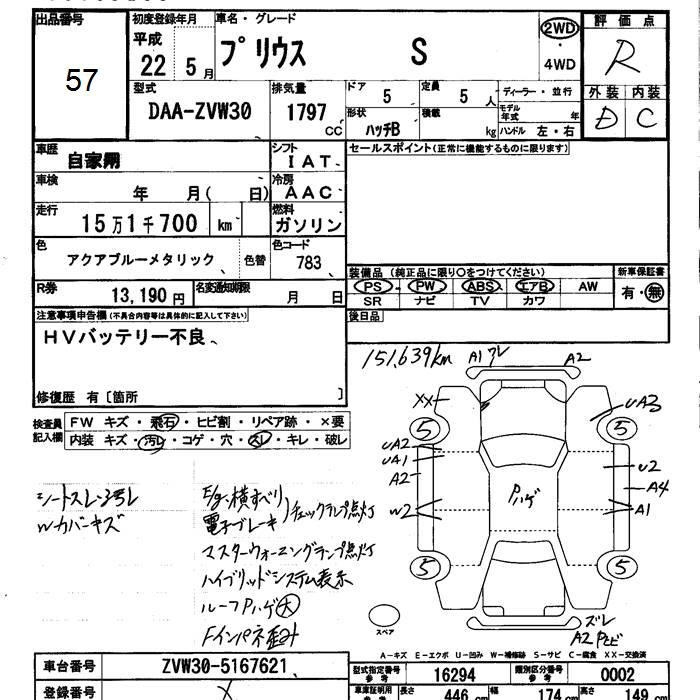 出品番号 初度登録年月 車名・グレード 2WD 評価点
57 平成 22 5月 プリウス S ・ 4WD R
型式 排気量 ドア 5 定員 5人 ディーラー・並行 外装 内装
DAA-ZVW30 1797 CC 形状 ハッチB 積載 kg モデル年式 年 D C
ハンドル 左・右
車歴 自家用 シフト IAT セールスポイント(正常に機能するものに限ります)
車検 年 月( 日) 冷房 AAC
走行 15万1千700 km 燃料 ガソリン
色 アクアブルーメタリック 色替 色コード 783
装備品(純正品に限り○をつけてください) 新車保証書
PS PW ABS エアB AW 有・無
SR ナビ TV カワ
R券 13,190円 名変通知期限 月 日
後日品
注意事項申告欄(不具合内容等は具体的に記入して下さい)
HVバッテリー不良
修復歴 有〔箇所 〕
151,639km A1 ワレ A2
検査員記入欄 FW キズ・飛石・ヒビ割・リペア跡・×要
内装 キズ・汚レ・コゲ・穴・スレ・キレ・破レ
XX UA3
5 5
UA2
UA1 U2
A2 A4
W2 A1
Pハゲ
5 5
シートスレ・汚レ
Wカバーキズ
E/g横すべり
電子ブレーキ チェックランプ点灯
マスターウォーニングランプ点灯
ハイブリッドシステム表示
ルーフPハゲ大
Fインパネ歪み
スペア
ズレ
A2 Pトビ
A-キズ E-エクボ U-凹み W-補修跡 S-サビ C-腐食 XX-交換済
車台番号 ZVW30-5167621 型式指定番号 参考 16294 類別区分番号 参考 0002
登録番号 車庫証明用 参考 長さ 446cm 幅 174cm 高さ 149cm